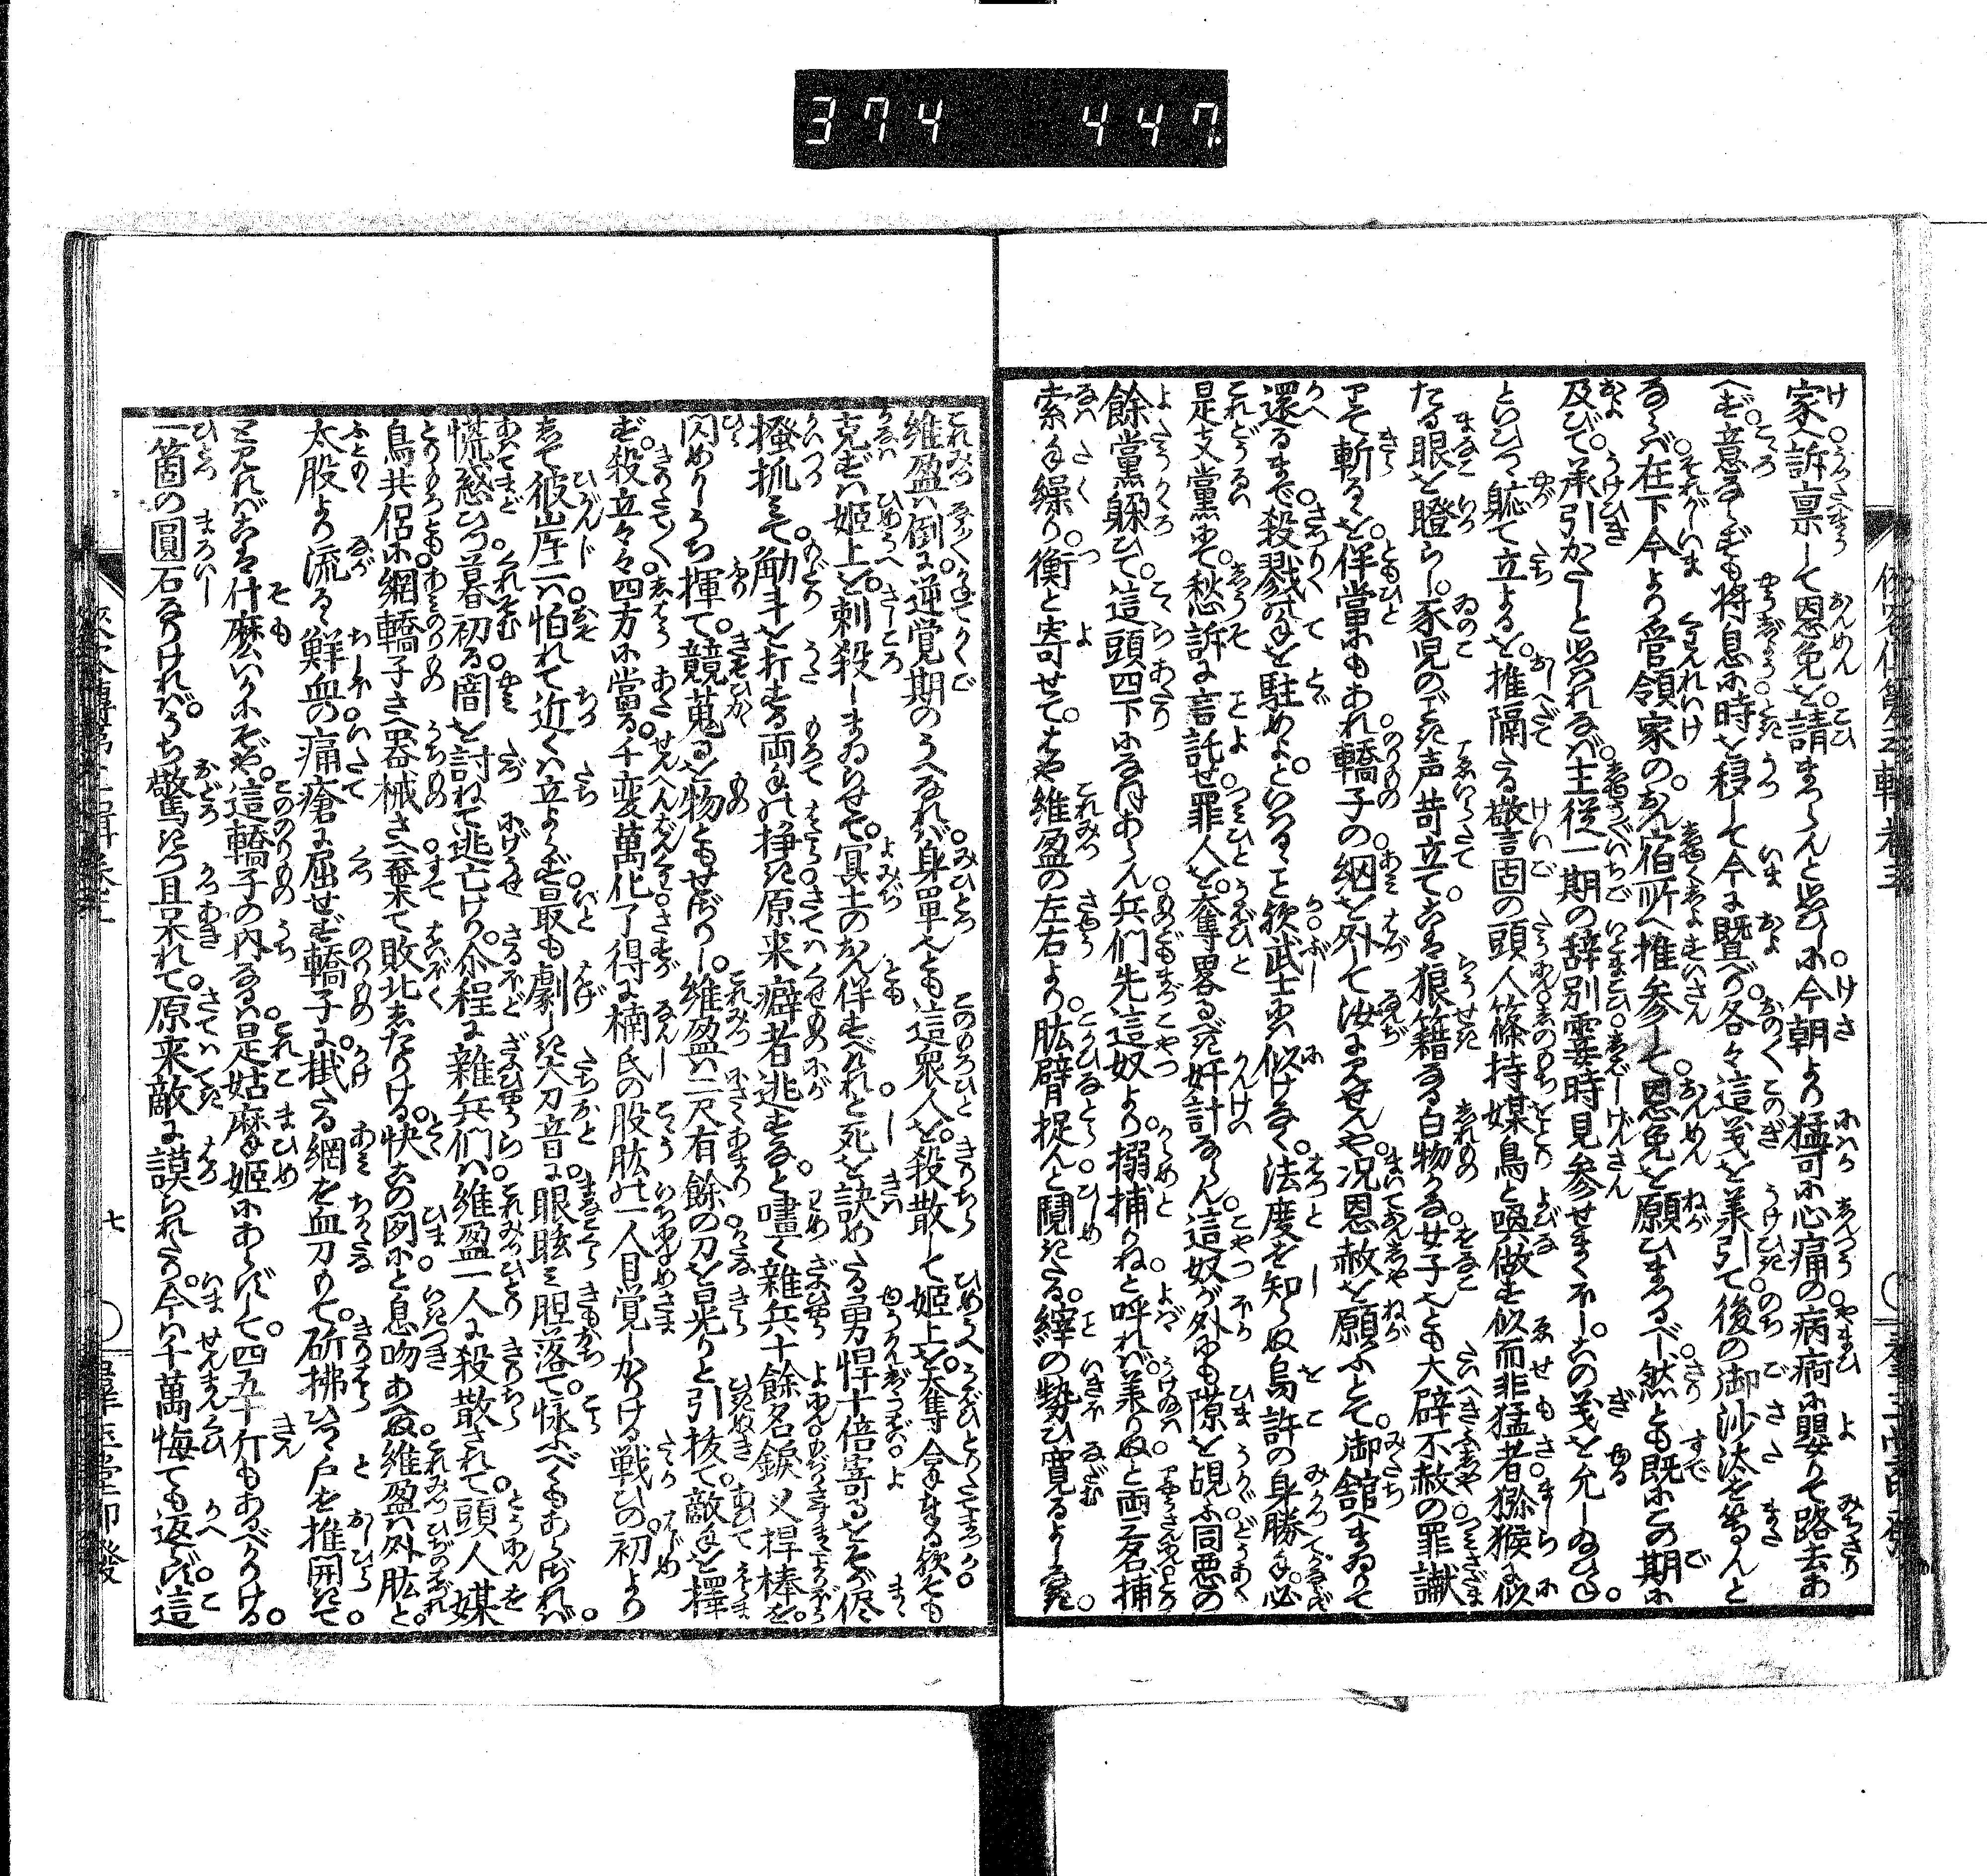 374 447
家へ訴稟して恩免を請まつらんと思ひしに今朝より猛可に心痛の病痾に嬰りて路去あ
へず立息ならずも将息に時を移して今に曁べり各々這義を兼引て後の御沙汰を等んと
ならバ在下今より管領家のおん宿所へ推参して恩免を願ひまつるべし然とも既にこの期に
及びて承引かたしと思れなバ主従一期の辞別霎時見参せまくほしこの義を允しねかし
といひつゝ軈て立よるを推隔たる敬言固の頭人篠持媒鳥と喚做す似而非猛者猕猴に似
たる眼を瞪らし豕児のごとき声苛立てこは狼籍なる白物かな女子なりとも大辟不赦の罪讞
にて斬るゝを伴當にもあれ轎子の網を外して汝に見せんや况恩赦を願ふとて御舘へまゐりて
還るまで殺戮の手を駐めよといへることか武士には似げなく法度を知らぬ烏許の身勝手必
是支黨にて愁訴に言託せ罪人を奪畧るべき奸計ならん這奴が外にも隙を覘ふ同悪の
餘黨躱ひて這頭四下になほあらん兵們先這奴より搦捕りねと呼れバ兼りぬと両三名捕
索を繰り衡と寄せてはや維盈の左右より肱臂捉んと鬩きたる緯の勢ひ寛るよしなき
維盈ハ倒に逆覚期のうへなれバ身單なりとも這衆人を殺散して姫上を奪合なる歟さても
克ずバ姫上を刺殺しまゐらせて冥土のおん伴すべけれと死を訣めたる勇悍十倍寄るをそが侭
掻抓みて觔斗を打する両手の挣き原来癖者逃すなと嚍く雜兵十餘名鋲叉桿棒を
閃めかしうち揮て競蒐るを物ともせざりし維盈ハ二尺有餘の刀を晃りと引抜て敵手を擇
ず殺立々々四方に當る千変萬化了得に楠氏の股肱の一人目覚しかりける戦ひの初より
して彼岸二ハ怕れて近くハ立よらず最も劇しき大刀音に眼眩み胆落て怺ふべくもあらざれバ
慌惑ひつ暮初る闇を討ねて迯亡けり余程に雜兵们ハ維盈一人に殺散されて頭人媒
鳥共侶に網轎子さへ器械さへ棄て敗北したりける快この隙にと息吻あへぬ維盈ハ外肱と
太股より流るゝ鮮血の痛瘡に屈せず轎子に掛たる網を血刀もて斫拂ひつゝ戸を推開きて
と見れバこは什麽いかにぞや這轎子の内なるハ是姑麻姫にあらずして四五十斤もあるべかりける
一箇の圓石なりけれバうち驚きつ且呆れて原来敵に謀られたり今ハ千萬悔ても返らず這
七